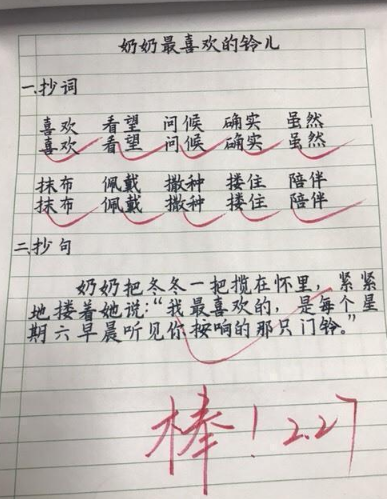 奶奶最喜欢的铃儿
一.抄词
喜欢 看望 问候 确实 虽然
喜欢 看望 问候 确实 虽然
抹布 佩戴 撒种 搂住 陪伴
抹布 佩戴 撒种 搂住 陪伴
二.抄句
奶奶把冬冬一把揽在怀里，紧紧
地搂着她说：“我最喜欢的，是每个星
期六早晨听见你按响的那只门铃。”
棒！2.27